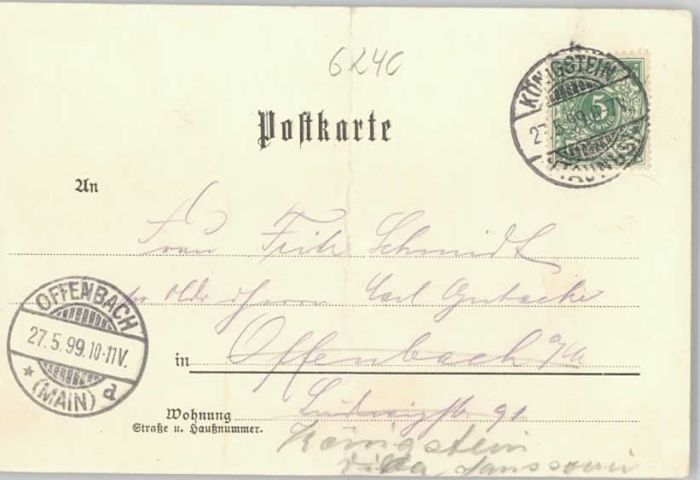 6240
KÖNIGSTEIN
27.5.99.6-7V.
(TAUNUS)
5
Postkarte
An
Frau Fritz Schmidt
Carl Gutacke
in Offenbach a/M
Wohnung Ludwigstr 91
Straße u. Hausnummer.
Königstein
Villa Sanssouci
OFFENBACH
27.5.99.10-11V.
* (MAIN) d